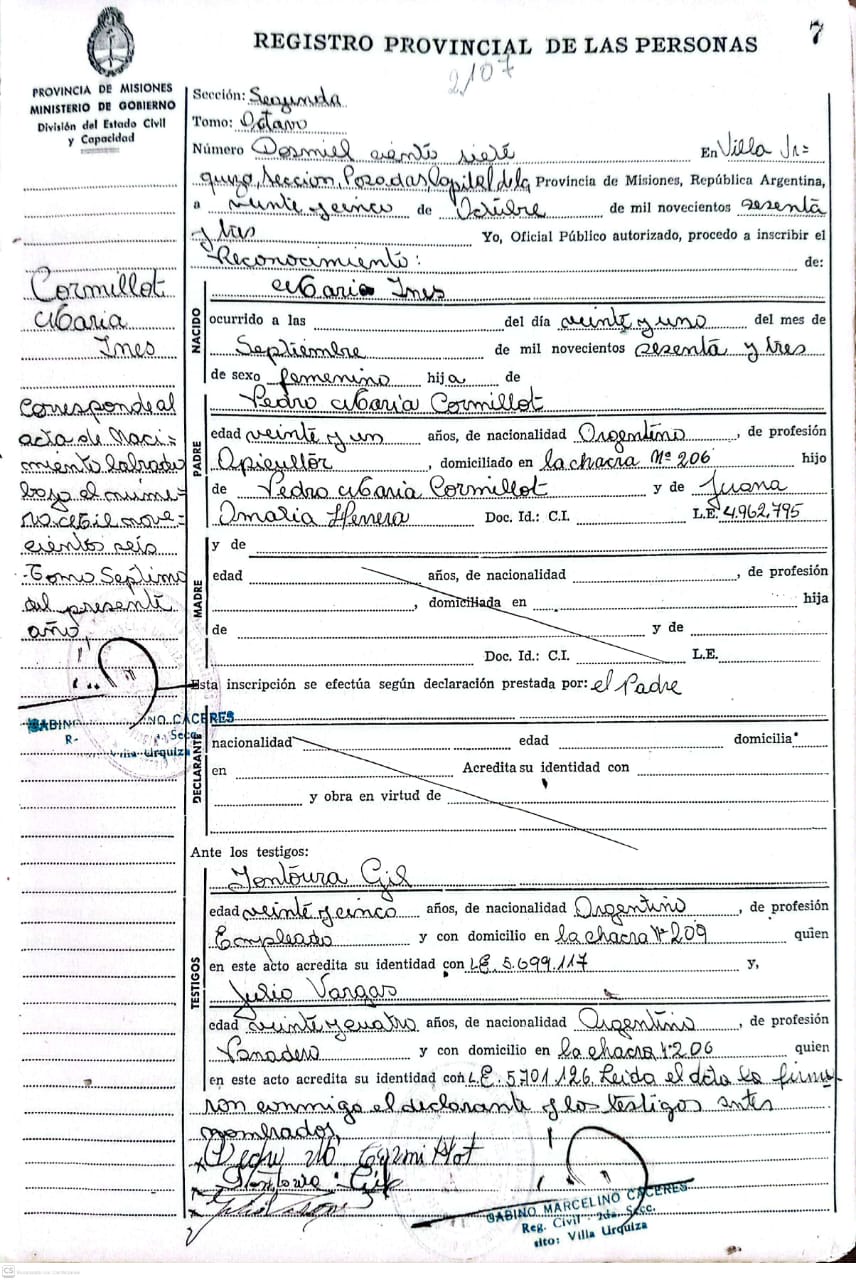 7
REGISTRO PROVINCIAL DE LAS PERSONAS
2107
PROVINCIA DE MISIONES
MINISTERIO DE GOBIERNO
División del Estado Civil
y Capacidad
Cormillot
Maria
Ines
Corresponde al
acta de Naci=
miento labrado
bajo el nume=
ro mil nove=
cientos seis
-Tomo Septimo
del presente
año,
Sección: Segunda
Tomo: Octavo
Número Dosmil ciento siete En Villa Ur=
quiza, Seccion, Posadas, Capital de la Provincia de Misiones, República Argentina,
a veinte y cinco de Octubre de mil novecientos sesenta
y tres Yo, Oficial Público autorizado, procedo a inscribir el
Reconocimiento: de:
NACIDO
Maria Ines
ocurrido a las del día veinte y uno del mes de
Septiembre de mil novecientos sesenta y tres
de sexo femenino hija de
PADRE
Pedro Maria Cormillot
edad veinte y un años, de nacionalidad Argentino, de profesión
Apicultor, domiciliado en la chacra Nº 206 hijo
de Pedro Maria Cormillot y de Juana
Omaria Herrera Doc. Id.: C.I. L.E. 4.962.795
MADRE
y de
edad años, de nacionalidad , de profesión
, domiciliada en hija
de y de
Doc. Id.: C.I. L.E.
Esta inscripción se efectúa según declaración prestada por: el Padre
DECLARANTE
nacionalidad edad domicilia
en Acredita su identidad con
y obra en virtud de
Ante los testigos:
TESTIGOS
Gil
edad veinte y cinco años, de nacionalidad Argentino, de profesión
Empleado y con domicilio en la chacra Nº 209 quien
en este acto acredita su identidad con L.E. 5.699.117 y,
Julio Vargas
edad veinte y cuatro años, de nacionalidad Argentino, de profesión
Panadero y con domicilio en la chacra Nº 206 quien
en este acto acredita su identidad con L.E. 5.701.126. Leida el acta la firma-
ron conmigo el declarante y los testigos antes
nombrados,
Cormillot
Gil
GABINO MARCELINO CACERES
Reg. Civil 2da. Secc.
dto: Villa Urquiza
CACERES
Secc.
Villa Urquiza
CS